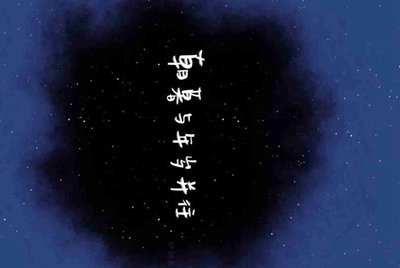 朝暮与年岁并往